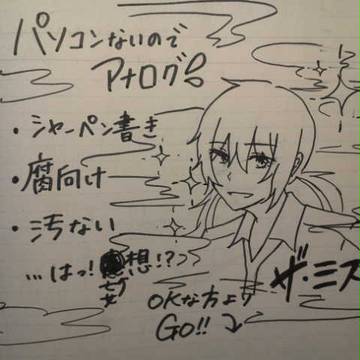 パソコンないので
アナログ!!
・シャーペン書き
・腐向け
・汚ない
…はっ！妄想!?
ザ・ミス
OKな方より
GO!!